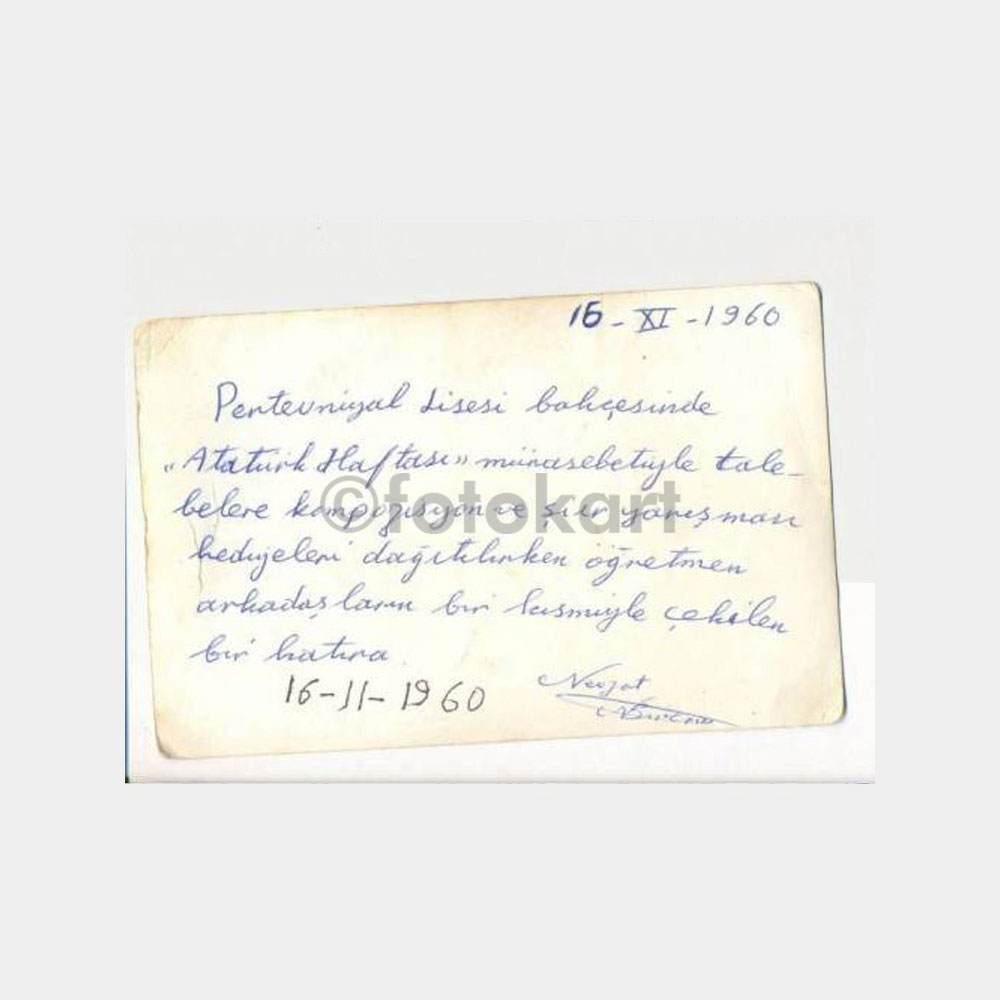 16-XI-1960
Pertevniyal Lisesi bahçesinde
"Atatürk Haftası" münasebetiyle tale-
belere kompozisyon ve şiir yarışması
hediyeleri dağıtılırken öğretmen
arkadaşların bir kısmiyle çekilen
bir hatıra.
16-11-1960
Nevzat
©fotokart